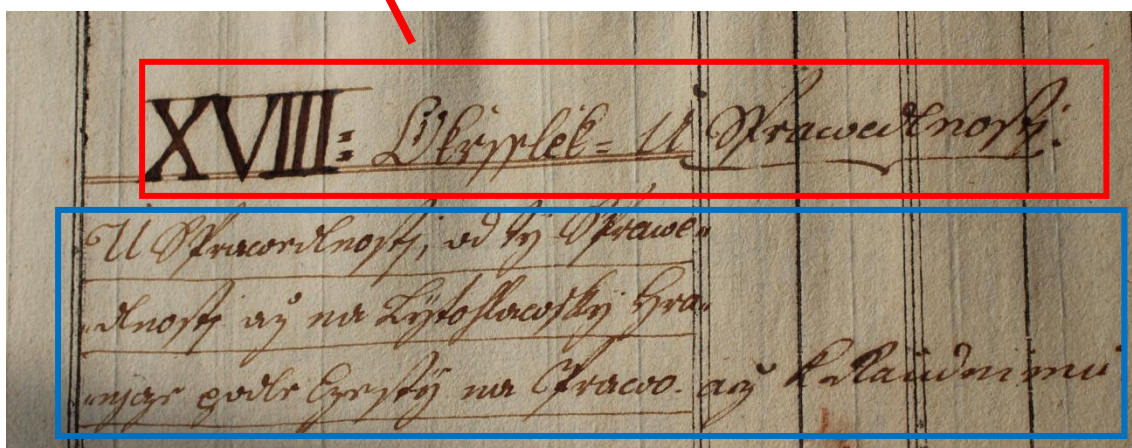 XVIII: Okrsslek = U Sprawedlnosti.
U Sprawedlnosti, od ty Sprawe„
„dlnosti až na Lýtohlawsky Hra„
„nize podle Czesty na Prawo. až k